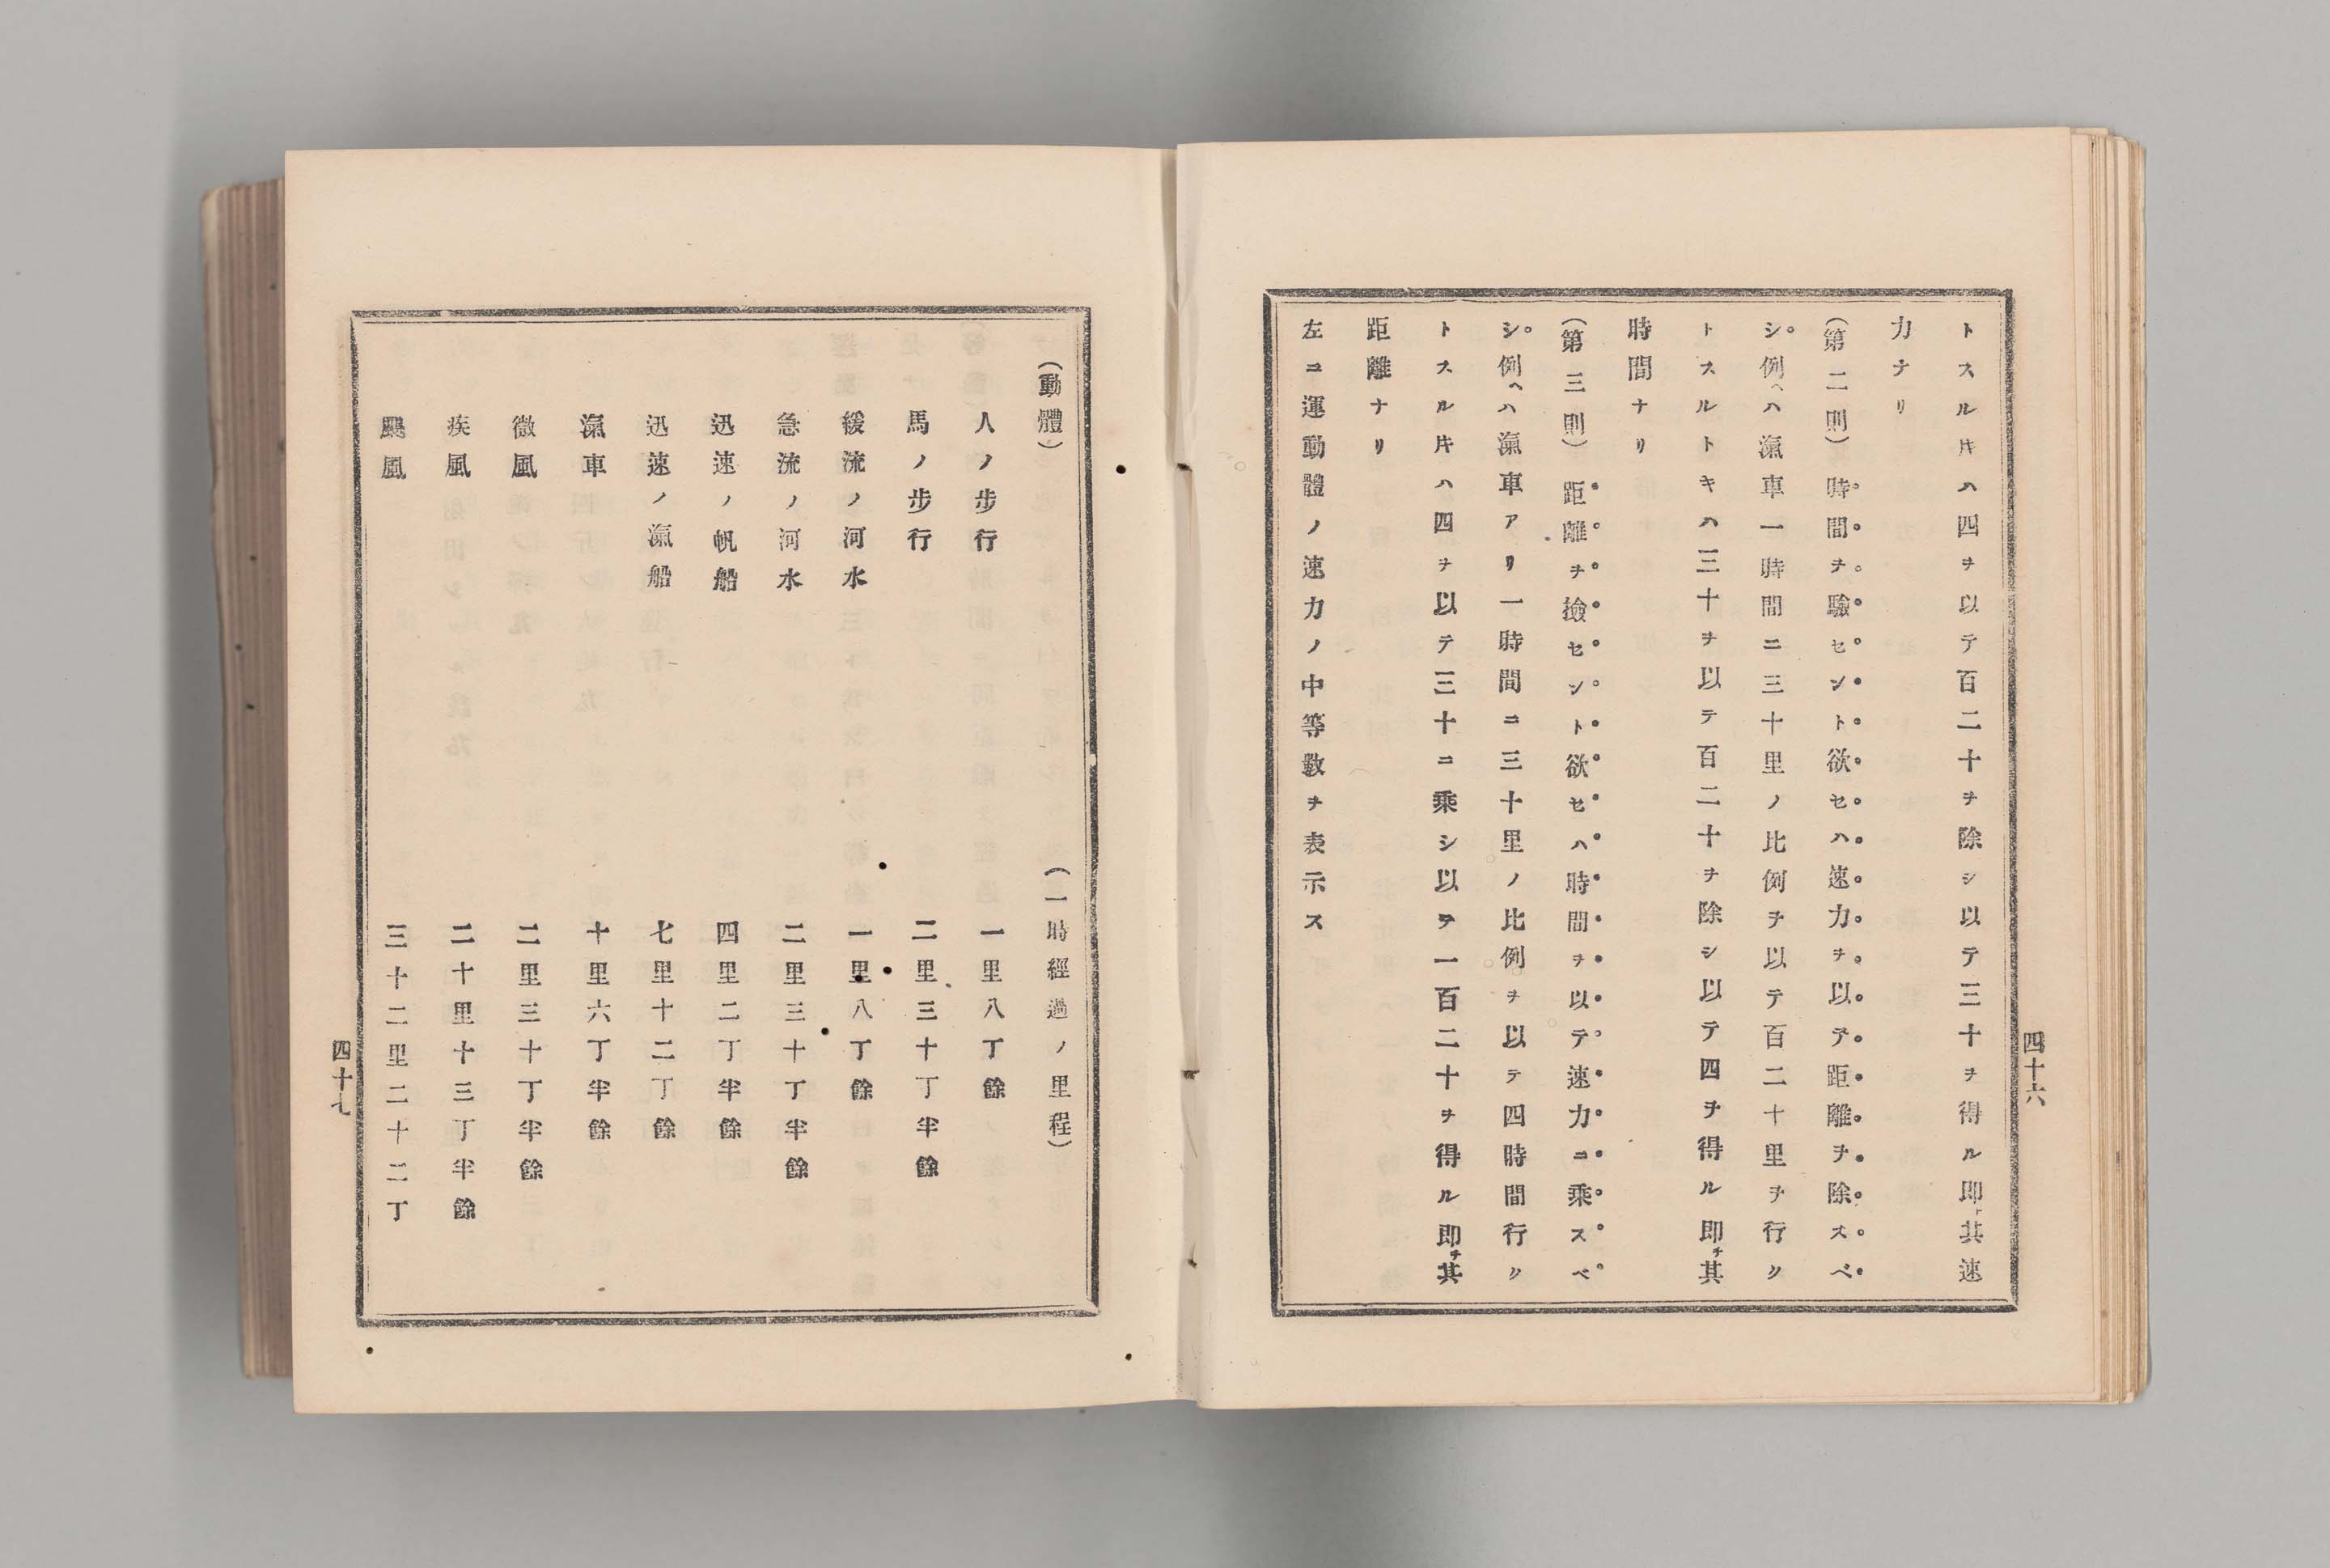 トスル𪜈ハ四ヲ以テ百二十ヲ除シ以テ三十ヲ得ル即チ其速
力ナリ
(第二則)時間ヲ驗セント欲セハ速力ヲ以テ距離ヲ除スベ
シ例ヘハ滊車一時間ニ三十里ノ比例ヲ以テ百二十里ヲ行ク
トスルトキハ三十ヲ以テ百二十ヲ除シ以テ四ヲ得ル即チ其
時間ナリ
(第三則)距離ヲ撿セント欲セハ時間ヲ以テ速力ニ乘スベ
シ例ヘハ滊車アリ一時間ニ三十里ノ比例ヲ以テ四時間行ク
トスル𪜈ハ四ヲ以テ三十ニ乘シ以テ一百二十ヲ得ル即チ其
距離ナリ
左ニ運動體ノ速力ノ中等數ヲ表示ス
四十六
(動體) (一時經過ノ里程)
人ノ步行 一里八丁餘
馬ノ步行 二里三十丁半餘
緩流ノ河水 一里八丁餘
急流ノ河水 二里三十丁半餘
迅速ノ帆船 四里二丁半餘
迅速ノ滊船 七里十二丁餘
滊車 十里六丁半餘
微風 二里三十丁半餘
疾風 二十里十三丁半餘
颶風 三十二里二十二丁
四十七